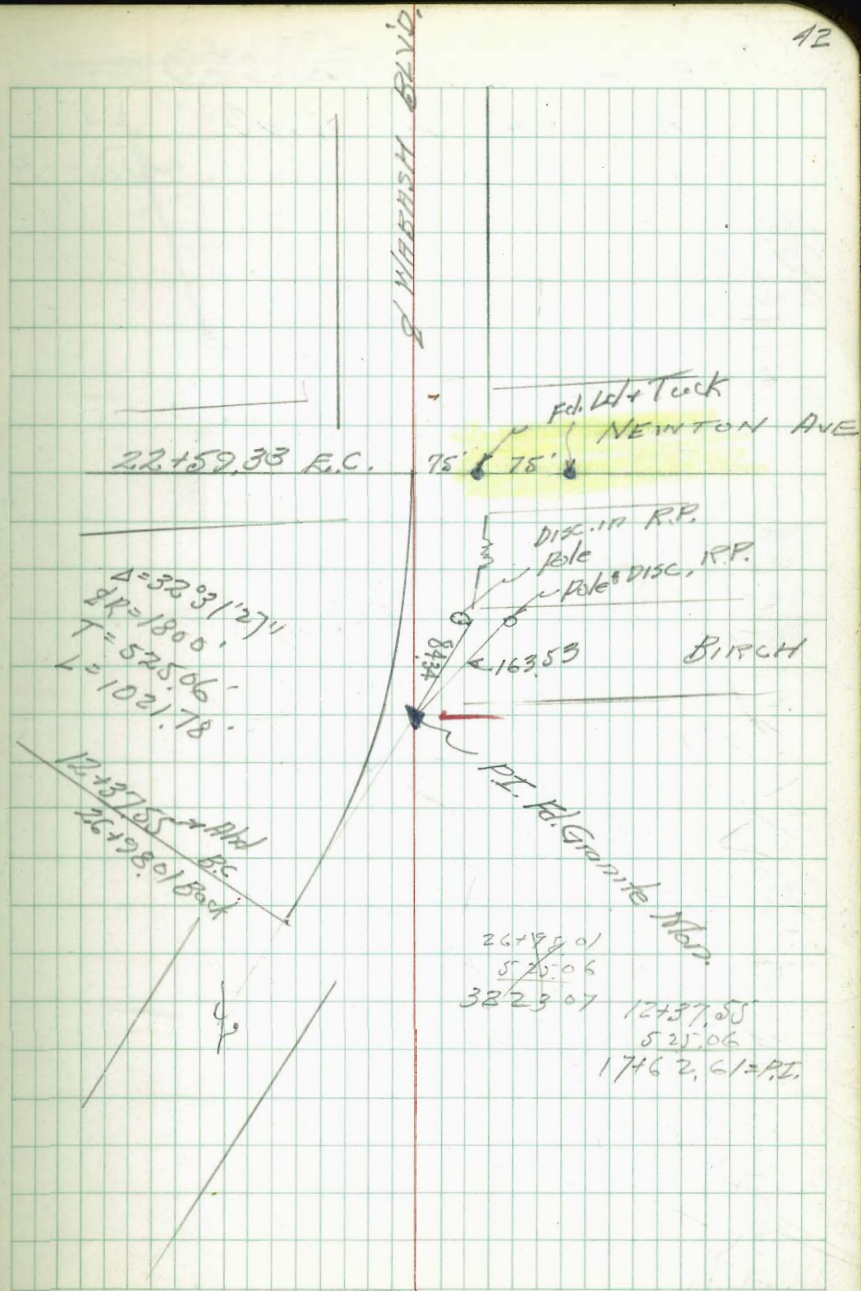 42
℄ WABASH BLVD.
Fd. Ld + Tack
NEWTON AVE
22+59.33 E.C.
75'
75'
Disc. in R.P.
Pole
Pole Disc. R.P.
Δ=32°31'27"
℄R=1800'
T=525.06'
L=1021.78'
84.34
163.53
BIRCH
12+37.55 Ahd
B.C.
26+98.01 Back
P.I. Fd. Granite Mon.
26+98.01
525.06
32 23 07
12+37.55
525.06
17+62.61=P.I.